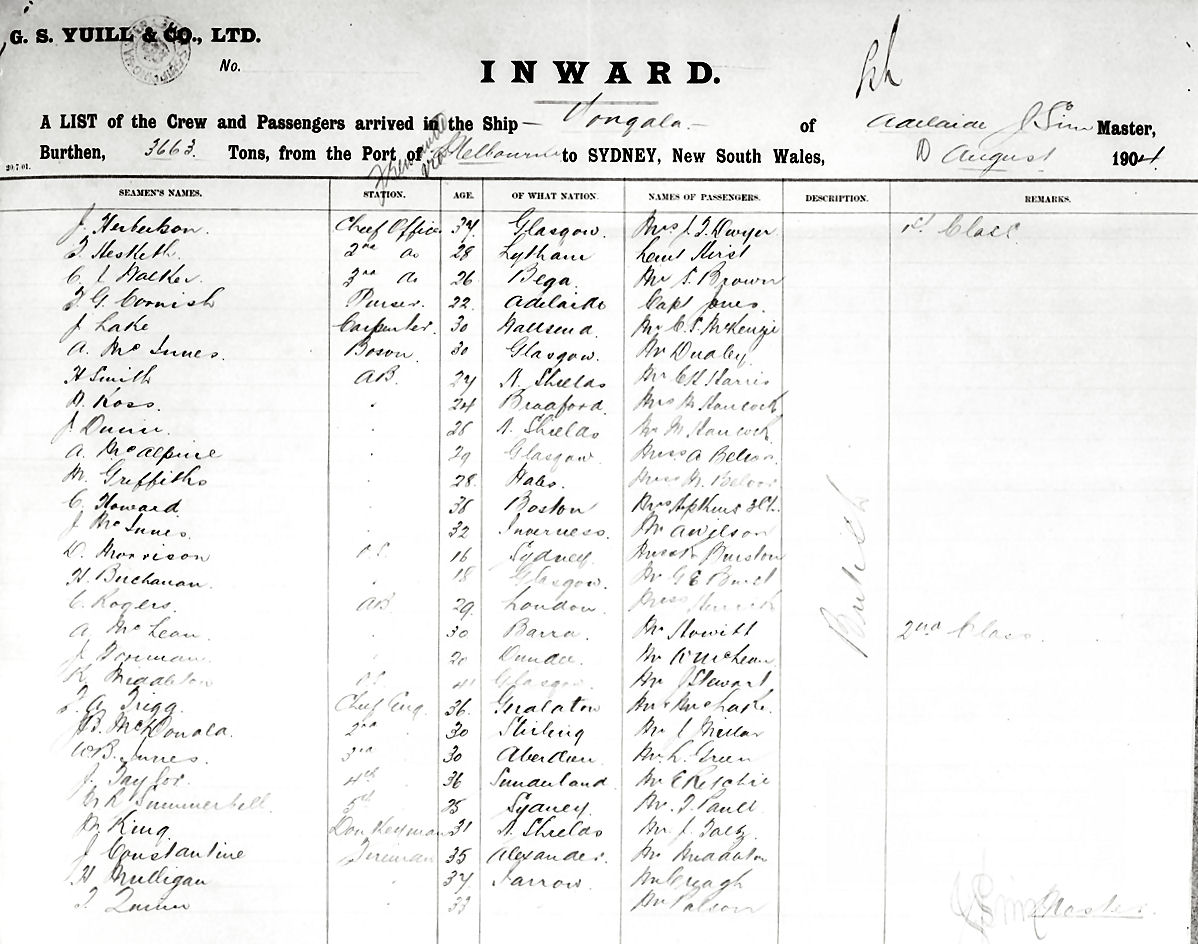 G. S. YUILL & CO., LTD.
No.
INWARD.
A LIST of the Crew and Passengers arrived in the Ship Yongala of Adelaide J Sim Master,
Burthen, 3663 Tons, from the Port of Fremantle via Melbourne to SYDNEY, New South Wales, 10 August 1904
20.7.01.
SEAMEN'S NAMES. STATION. AGE. OF WHAT NATION. NAMES OF PASSENGERS. DESCRIPTION. REMARKS.
J. Herbertson. Chief Officer 37 Glasgow. Mrs J. T. Dwyer 1st Class.
T. Hesketh 2nd do 28 Lytham Lieut Hirst
C. J Walker. 3rd do 26 Bega. Mr S. Brown
T. G. Cornish Purser. 22 Adelaide Capt Jones
J Lake Carpenter. 30 Wallsend. Mr C. S. McKenzie
A. McInnes. Boson. 30 Glasgow. Mr Dudley
H Smith AB. 27 N. Shields Mr C H Harris
D. Ross. 24 Bradford. Mrs M Hancock
J Dunn. 28 N. Shields Mr M Hancock
A. McAlpine 29 Glasgow. Miss A
M. Griffiths 28. Miss M.
C. Howard 38 Boston Mrs Hopkins
J. McInnes. 32 Inverness. Mr A Wilson
D. Morrison O.S. 16 Sydney
H. Buchanan. 18 Glasgow. Mr G E
C. Rogers. AB. 29 London Miss
A. McLean. 30 Barra. Mr Howitt 2nd Class.
British
20 Dundee. Mr McLean
Middleton O.S. Glasgow. Mr J Stewart
T. A. Trigg. Chief Eng. 36. Geralaton
J. B. McDonald. 2nd 30 Stirling Mr Millar
W B. Innes. 3rd 30 Aberdeen. Mr L. Green
J. Taylor. 4th 36 Sunderland. Mr E Ritchie
Summerbell. 5th 25 Sydney. Mr. T. Paull
M. King Donkeyman 31 N. Shields Mr J.
J Constantine Fireman 35 Alexander. Mr Middleton
H Mulligan 37 Jarrow. Mr Creagh
T. Quinn 33 Mr Polson
J Sim Master.